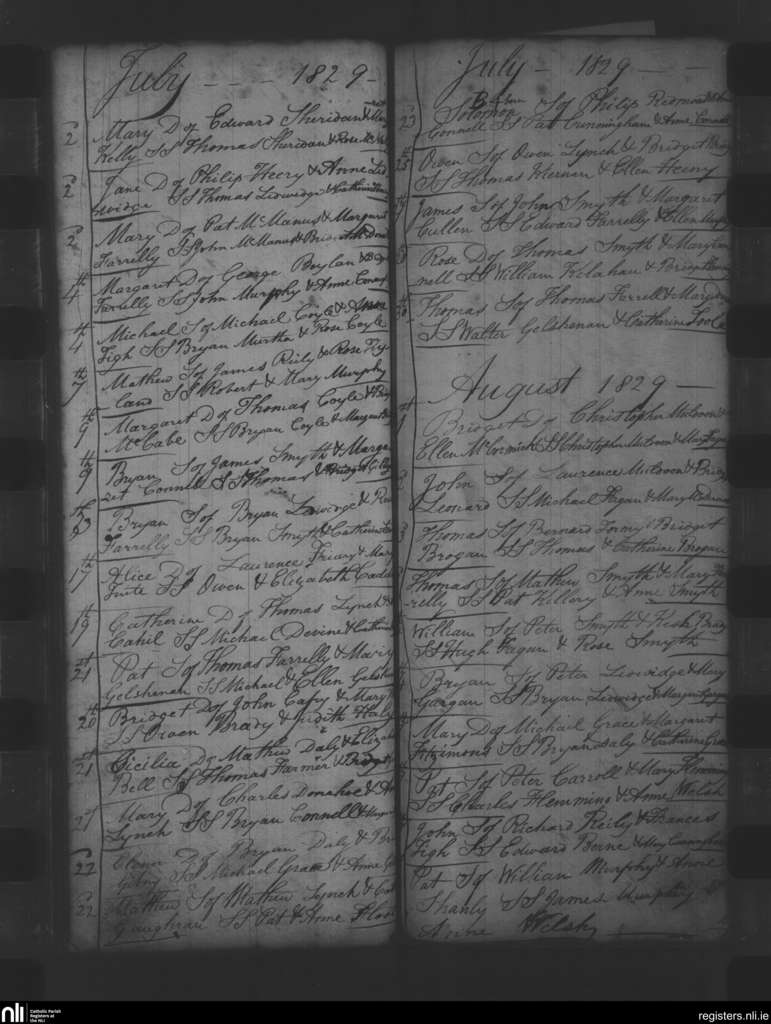 July - - - 1829 -
2 Mary D of Edward Sheridan &
Kelly SS Thomas Sheridan & Rose
2 Jane D of Philip Heery & Anne Lid
-widge SS Thomas Lidwidge & Catherine
2 Mary D of Pat McManus & Margaret
Farrelly SS John McManus & Bridget
4th Margaret D of George Boylan &
Farrelly SS John Murphy & Anne
4th Michael S of Michael Coyle & Anne
Tigh SS Bryan Murtha & Rose Coyle
7th Mathew S of James Reily & Rose Hy
-land SS Robert & Mary Murphy
9th Margaret D of Thomas Coyle &
McCabe SS Bryan Coyle & Margaret
9th Bryan S of James Smyth & Marga
ret Connell SS Thomas & Bridget
13 Bryan S of Bryan Lidwidge & Rose
Farrelly SS Bryan Smyth & Catherine
17th Alice D of Laurence Friary & Mary
Tuite SS Owen & Elizabeth
19th Catherine D of Thomas Lynch &
Cahil SS Michael Devine & Catherine
21st Pat S of Thomas Farrelly & Mary
Gelshenan SS Michael & Ellen Gelshenan
20th Bridget D of John Cafy & Mary
SS Owen Brady & Judith Healy
21st Cicilia D of Mathew Daly & Eliza
Bell SS Thomas Farmer & Bridget
21 Mary D of Charles Donahoe &
Lynch SS Bryan Connell &
22 D of Bryan Daly &
SS Michael Grace & Anne
22 Matthew S of Mathew Lynch &
Gaughran SS Pat & Anne Flood
July - 1829 - -
23 Solomon S of Philip Redmond &
Connell SS Pat Cunningham & Anne Connell
25th Owen S of Owen Lynch & Bridget Brady
SS Thomas Kiernan & Ellen Heery
James S of John Smyth & Margaret
Cullen SS Edward Farrelly & Ellen
Rose D of Thomas Smyth & Mary
nell SS William Kelahan & Bridget
30th Thomas S of Thomas Farrell & Mary
SS Walter Gelshenan & Catherine Toole
August 1829 -
1st Bridget D of Christopher McEvoy &
Ellen McCormick SS Christopher McEvoy & Mary Fagan
2 John S of Laurence McEvoy & Bridget
Leonard SS Michael Fagan & Mary
3 Thomas S of Bernard & Bridget
Brogan SS Thomas & Catherine Brogan
Thomas S of Mathew Smyth & Mary Fa
-relly SS Pat Killery & Anne Smyth
William S of Peter Smyth & Brady
SS Hugh Fagan & Rose Smyth
Bryan S of Peter Lidwidge & Mary
Gargan SS Bryan Lidwidge & Margaret Gargan
Mary D of Michael Grace & Margaret
Fitzsimons SS Bryan Daly & Catherine Grace
Pat S of Peter Carroll & Mary Flemming
SS Charles Flemming & Anne Welsh
John S of Richard Reily & Frances
Tigh SS Edward Berne & Mary Cunningham
Pat S of William Murphy & Anne
Shanly SS James Murphy &
Anne Welsh
nli
Catholic Parish
Registers at
the NLI
registers.nli.ie